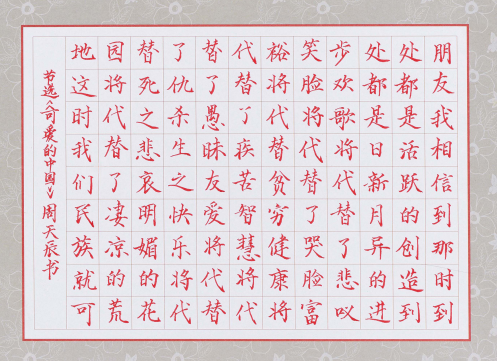 朋友我相信到那时到
处都是活跃的创造到
处都是日新月异的进
步欢歌将代替了悲叹
笑脸将代替了哭脸富
裕将代替贫穷健康将
代替了疾苦智慧将代
替了愚昧友爱将代替
了仇杀生之快乐将代
替死之悲哀明媚的花
园将代替了凄凉的荒
地这时我们民族就可
节选《可爱的中国》周天辰书